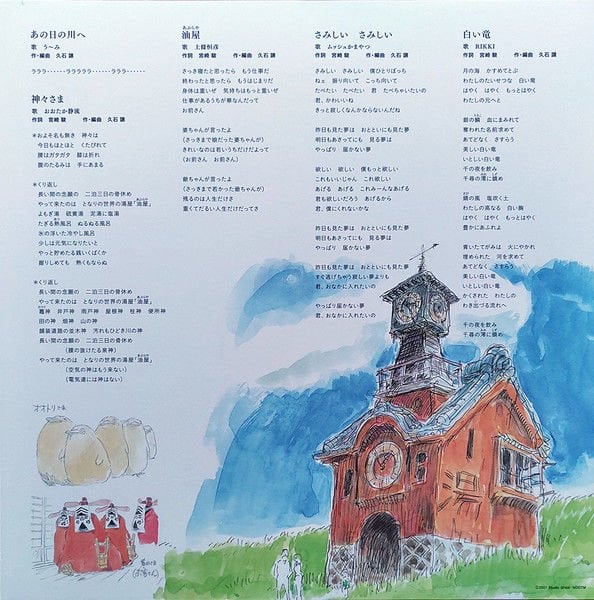 あの日の川へ
歌　う〜み
作・編曲　久石 譲
ラララ‥‥‥ララララララ‥‥‥ラララ‥‥‥
神々さま
歌　おおたか静流
作詞　宮崎 駿　作・編曲　久石 譲
＊およそ名も無き　神々は
今日もほとほと　くたびれて
腰はガタガタ　膝は折れ
腹のたるみは　手にあまる
＊くり返し
長い間の念願の　二泊三日の骨休め
やって来たのは　となりの世界の湯屋「油屋」
よもぎ湯　硫黄湯　泥湯に塩湯
たぎる熱風呂　ぬるぬる風呂
氷の浮いた冷やし風呂
少しは元気になりたいと
やっと貯めた銭いくばくか
握りしめても　熱くもならぬ
＊くり返し
長い間の念願の　二泊三日の骨休め
やって来たのは　となりの世界の湯屋「油屋」
竈神　井戸神　雨戸神　屋根神　柱神　便所神
田の神　畑神　山の神
舗装道路の並木神　汚れもひどき川の神
長い間の念願の　二泊三日の骨休め
（腰の抜けたる泉神）
やって来たのは　となりの世界の湯屋「油屋」
（空気の神はもう来ない）
（電気道には神はない）
オオトリさま
油屋
あぶらや
歌　上條恒彦
作詞　宮崎 駿　作・編曲　久石 譲
さっき寝たと思ったら　もう仕事だ
終わったと思ったら　もうはじまりだ
身体は重いぜ　気持ちはもっと重いぜ
仕事があるうちが華なんだって
お前さん
婆ちゃんが言ったよ
（さっきまで娘だった婆ちゃんが）
きれいなのは若いうちだけだよって
（お前さん　お前さん）
爺ちゃんが言ったよ
（さっきまで若かった爺ちゃんが）
残るのは人生だけさ
重くてだるい人生だけだってさ
さみしい　さみしい
歌　ムッシュかまやつ
作詞　宮崎 駿　作・編曲　久石 譲
さみしい　さみしい　僕ひとりぼっち
ねぇ　振り向いて　こっち向いて
たべたい　たべたい　君　たべちゃいたいの
君、かわいいね
きっと寂しくなんかならないんだね
昨日も見た夢は　おとといにも見た夢
明日もあさってにも　見る夢は
やっぱり　届かない夢
欲しい　欲しい　僕もっと欲しい
これもいいじゃん　これ欲しい
あげる　あげる　これみーんなあげる
君も欲しいだろう　あげるから
君、僕にくれないかな
昨日も見た夢は　おとといにも見た夢
明日もあさってにも　見る夢は
やっぱり　届かない夢
昨日も見た夢は　おとといにも見た夢
すぐ逃げちゃう寂しい夢よりも
君、おなかに入れたいの
やっぱり届かない夢
君、おなかに入れたいの
白い竜
歌　RIKKI
作詞　宮崎 駿　作・編曲　久石 譲
月の海　かすめてとぶ
わたしのたいせつな　白い竜
はやく　はやく　もっとはやく
わたしの元へと
銀の鱗　血にまみれて
奪われた名前求めて
あてどなく　さすらう
美しい白い竜
いとしい白い竜
千の夜を飲み
千尋の淵に潜め
錆の風　塩吹く土
わたしの高なる　白い胸
はやく　はやく　もっとはやく
豊かにあふれよ
青いたてがみは　火にやかれ
埋められた　河を求めて
あてどなく　さすらう
美しい白い竜
いとしい白い竜
かくされた　わたしの
わき出づる流れへ
千の夜を飲み
千尋の淵に潜め
©2001 Studio Ghibli・NDDTM